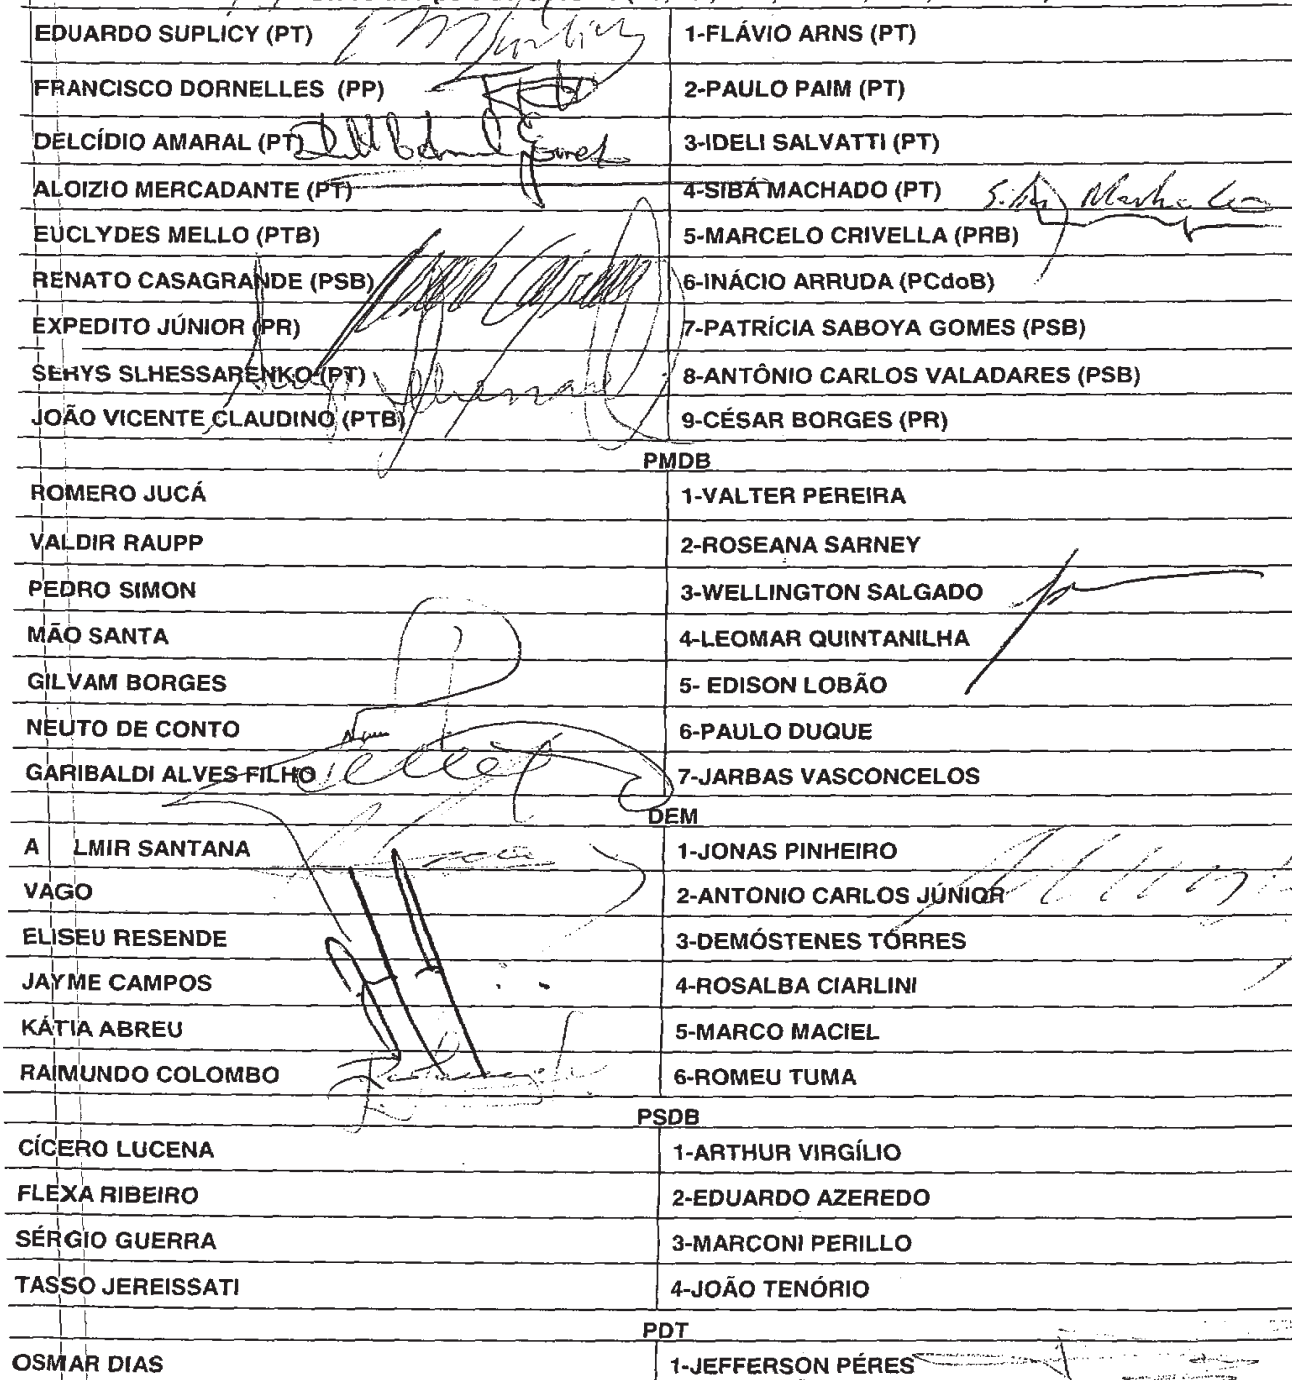 EDUARDO SUPLICY (PT) 1-FLÁVIO ARNS (PT)
FRANCISCO DORNELLES (PP) 2-PAULO PAIM (PT)
DELCÍDIO AMARAL (PT) 3-IDELI SALVATTI (PT)
ALOIZIO MERCADANTE (PT) 4-SIBÁ MACHADO (PT)
EUCLYDES MELLO (PTB) 5-MARCELO CRIVELLA (PRB)
RENATO CASAGRANDE (PSB) 6-INÁCIO ARRUDA (PCdoB)
EXPEDITO JÚNIOR (PR) 7-PATRÍCIA SABOYA GOMES (PSB)
SERYS SLHESSARENKO (PT) 8-ANTÔNIO CARLOS VALADARES (PSB)
JOÃO VICENTE CLAUDINO (PTB) 9-CÉSAR BORGES (PR)
PMDB
ROMERO JUCÁ 1-VALTER PEREIRA
VALDIR RAUPP 2-ROSEANA SARNEY
PEDRO SIMON 3-WELLINGTON SALGADO
MÃO SANTA 4-LEOMAR QUINTANILHA
GILVAM BORGES 5- EDISON LOBÃO
NEUTO DE CONTO 6-PAULO DUQUE
GARIBALDI ALVES FILHO 7-JARBAS VASCONCELOS
DEM
A LMIR SANTANA 1-JONAS PINHEIRO
VAGO 2-ANTONIO CARLOS JÚNIOR
ELISEU RESENDE 3-DEMÓSTENES TORRES
JAYME CAMPOS 4-ROSALBA CIARLINI
KÁTIA ABREU 5-MARCO MACIEL
RAIMUNDO COLOMBO 6-ROMEU TUMA
PSDB
CÍCERO LUCENA 1-ARTHUR VIRGÍLIO
FLEXA RIBEIRO 2-EDUARDO AZEREDO
SÉRGIO GUERRA 3-MARCONI PERILLO
TASSO JEREISSATI 4-JOÃO TENÓRIO
PDT
OSMAR DIAS 1-JEFFERSON PÉRES